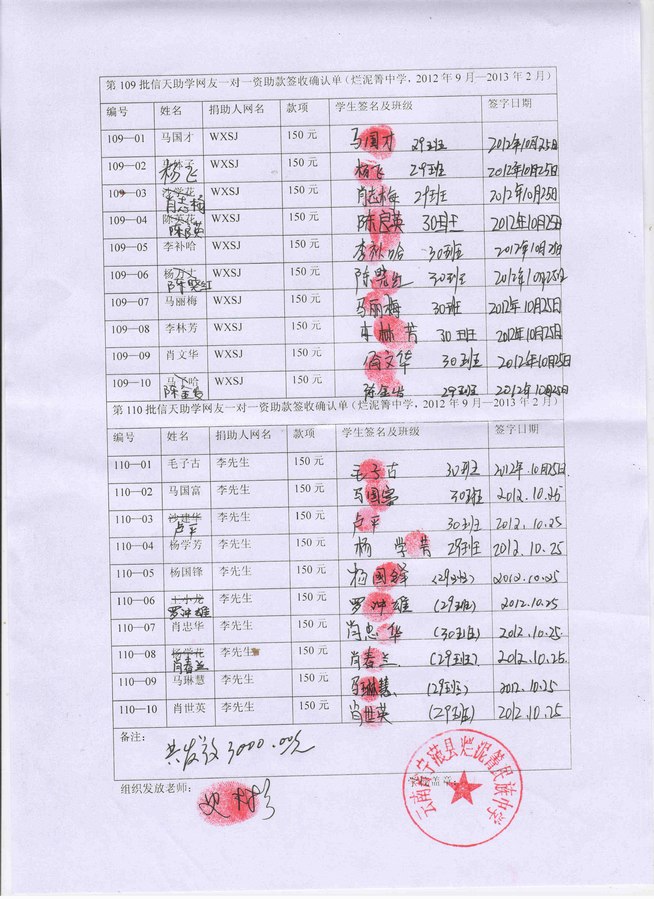 第 109 批信天助学网友一对一资助款签收确认单（烂泥箐中学，2012 年 9 月—2013 年 2 月）
编号 姓名 捐助人网名 款项 学生签名及班级 签字日期
109—01 马国才 WXSJ 150 元 马国才 29班 2012年10月25日
109—02 杨飞 WXSJ 150 元 杨飞 29班 2012年10月25日
109—03 肖志梅 WXSJ 150 元 肖志梅 29班 2012年10月25日
109—04 陈英花 陈良英 WXSJ 150 元 陈良英 30班 2012年10月25日
109—05 李补哈 WXSJ 150 元 李补哈 30班 2012年10月25日
109—06 陈晓红 WXSJ 150 元 陈晓红 30班 2012年10月25日
109—07 马丽梅 WXSJ 150 元 马丽梅 30班 2012年10月25日
109—08 李林芳 WXSJ 150 元 李林芳 30班 2012年10月25日
109—09 肖文华 WXSJ 150 元 肖文华 30班 2012年10月25日
109—10 WXSJ 150 元 29班 2012年10月25日
第 110 批信天助学网友一对一资助款签收确认单（烂泥箐中学，2012 年 9 月—2013 年 2 月）
编号 姓名 捐助人网名 款项 学生签名及班级 签字日期
110—01 毛子古 李先生 150 元 毛子古 30班 2012年.10月25日
110—02 马国富 李先生 150 元 马国富 30班 2012.10.25
110—03 沙建华 卢平 李先生 150 元 卢平 30班 2012.10.25
110—04 杨学芳 李先生 150 元 杨学芳 29班 2012.10.25
110—05 杨国锋 李先生 150 元 杨国锋 (29班) 2012.10.25
110—06 王小龙 罗冲雄 李先生 150 元 罗冲雄 (29班) 2012.10.25
110—07 肖忠华 李先生 150 元 肖忠华 (30班) 2012.10.25
110—08 杨学花 肖春兰 李先生 150 元 肖春兰 (29班) 2012.10.25
110—09 马琳慧 李先生 150 元 马琳慧 (29班) 2012.10.25
110—10 肖世英 李先生 150 元 肖世英 (29班) 2012.10.25
备注：
共发放3000.00元
组织发放老师： 盖章：
云南省宁蒗县烂泥箐民族中学